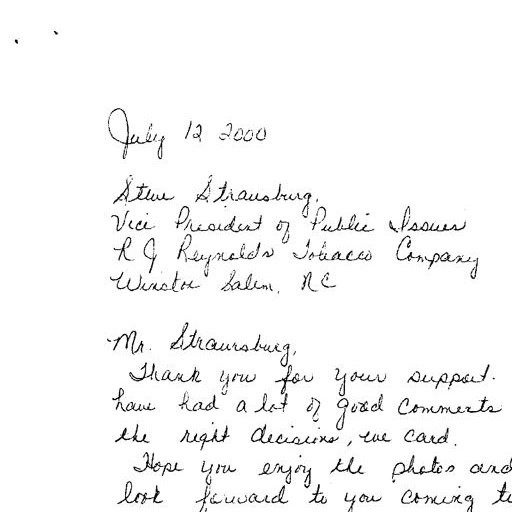 July 12 2000
Steve Strausburg,
Vice President of Public Issues
R J Reynolds Tobacco Company
Winston Salem, NC
Mr. Straursburg,
Thank you for your support.
have had a lot of good comments
the right decisions, we card.
Hope you enjoy the photos and
look forward to you coming